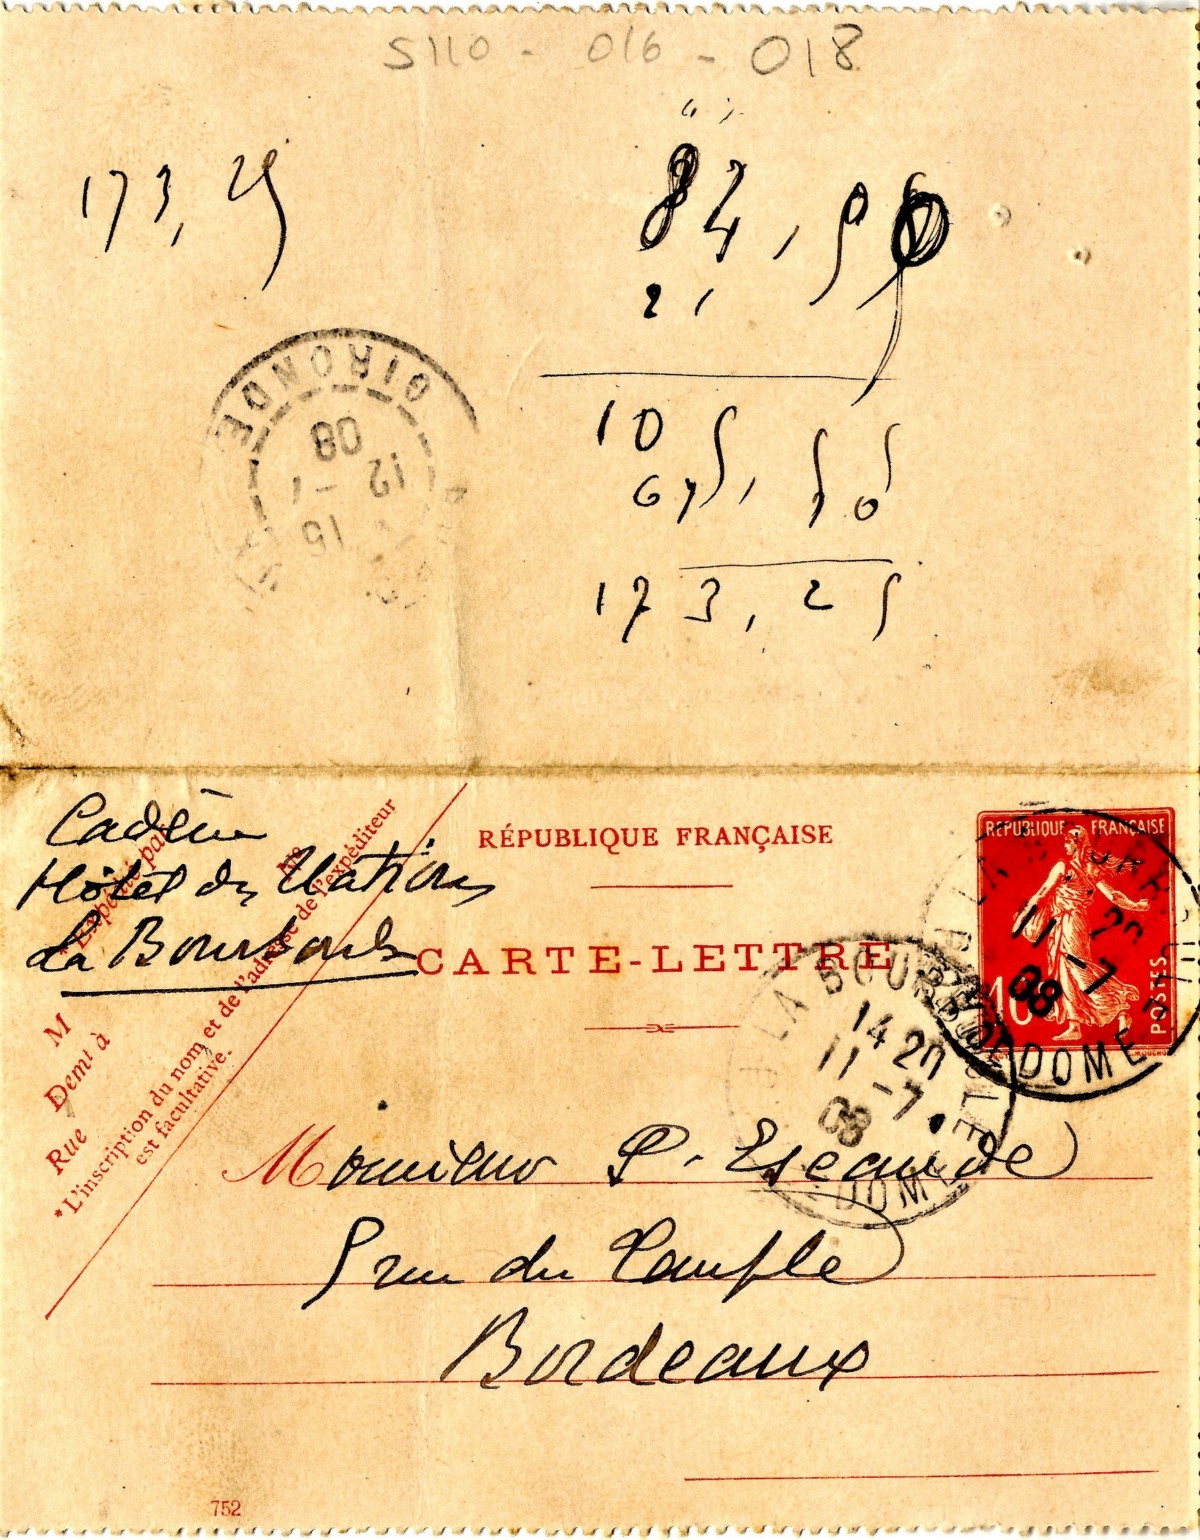 5110 - 016 - 018
173,25
84,50
21,
105,55
67,70
173,25
GIRONDE
15
12 -7
08
RÉPUBLIQUE FRANÇAISE
CARTE-LETTRE
Hôtel des Nations
La Bourboule
Expédié par
M
Demt à
Rue
*L'inscription du nom et de l'adresse de l'expéditeur
est facultative.
RÉPUBLIQUE FRANÇAISE
10
POSTES
LA BOURBOULE
11 -7
08
DOME
LA BOURBOULE
14 20
11 -7
08
DOME
Monsieur P. Escande
5 rue du Temple
Bordeaux
752